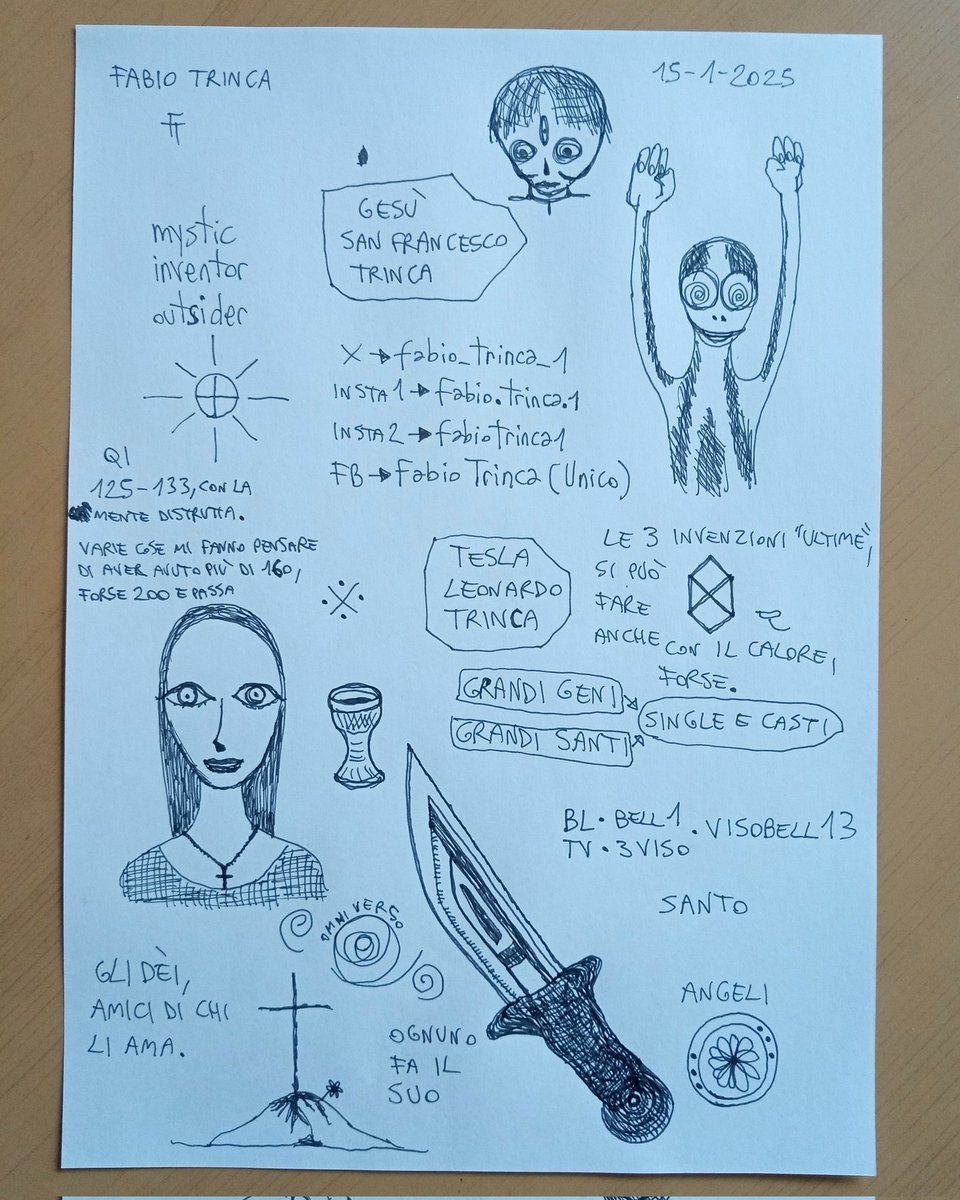 FABIO TRINCA
15-1-2025
FT
mystic
inventor
outsider
GESÙ
SAN FRANCESCO
TRINCA
X → fabio_trinca_1
INSTA1 → fabio.trinca.1
INSTA2 → fabiotrinca1
FB → Fabio Trinca (Unico)
QI
125-133, CON LA
MENTE DISTRUTTA.
VARIE COSE MI FANNO PENSARE
DI AVER AVUTO PIÙ DI 160,
FORSE 200 E PASSA
TESLA
LEONARDO
TRINCA
LE 3 INVENZIONI "ULTIME",
SI PUÒ
FARE
ANCHE CON IL CALORE,
FORSE.
GRANDI GENI
GRANDI SANTI
SINGLE E CASTI
BL. BELL1. VISOBELL13
TV. 3VISO
SANTO
OMNIVERSO
GLI DÈI,
AMICI DI CHI
LI AMA.
OGNUNO
FA IL
SUO
ANGELI